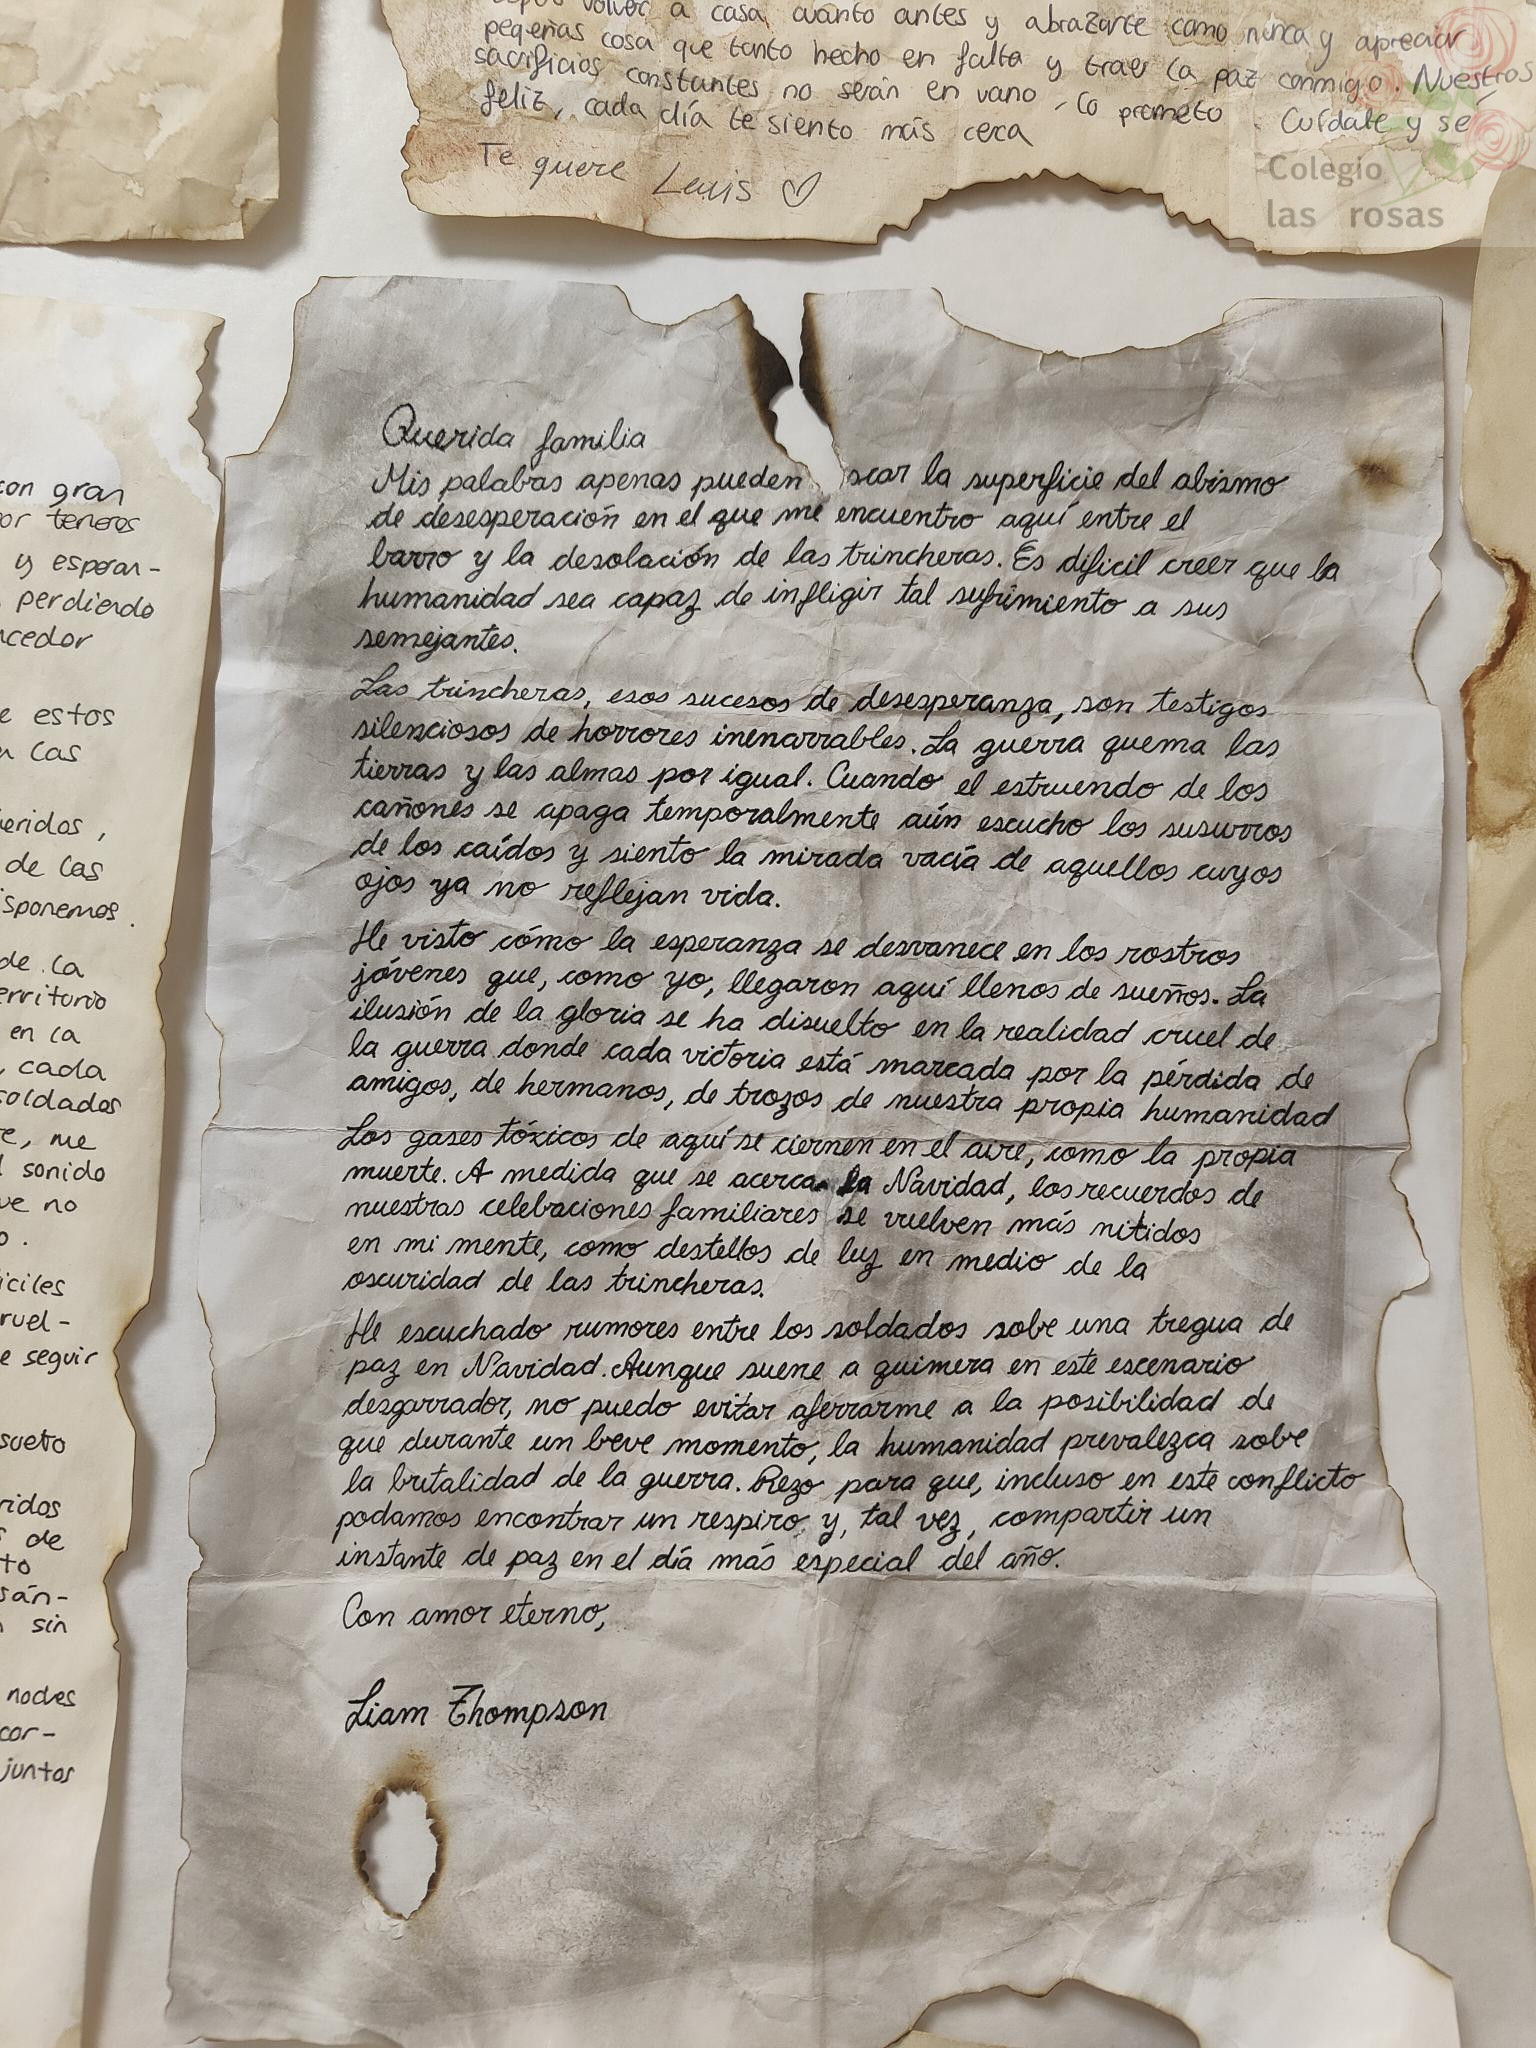 volver a casa cuanto antes y abrazarte como nunca y apreciar
pequeñas cosa que tanto hecho en falta y traer la paz conmigo. Nuestros
sacrificios constantes no serán en vano, lo prometo. Cuídate y sé
feliz, cada día te siento más cerca
Te quere Lewis
Colegio
las rosas
con gran
or teneros
y esperan-
perdiendo
ncedor
e estos
n las
eridos,
de las
isponemos.
de la
erritorio
en la
, cada
soldados
re, me
l sonido
ve no
o.
iciles
ruel-
e seguir
sueto
ridos
s de
to
sán-
n sin
nodes
cor-
juntos
Querida familia
Mis palabras apenas pueden scar la superficie del abismo
de desesperación en el que me encuentro aquí entre el
barro y la desolación de las trincheras. Es dificil creer que la
humanidad sea capaz de infligir tal sufrimiento a sus
semejantes.
Las trincheras, esos sucesos de desesperanza, son testigos
silenciosos de horrores inenarrables. La guerra quema las
tierras y las almas por igual. Cuando el estruendo de los
cañones se apaga temporalmente aún escucho los susurros
de los caídos y siento la mirada vacía de aquellos cuyos
ojos ya no reflejan vida.
He visto cómo la esperanza se desvanece en los rostros
jóvenes que, como yo, llegaron aquí llenos de sueños. La
ilusión de la gloria se ha disuelto en la realidad cruel de
la guerra donde cada victoria está marcada por la pérdida de
amigos, de hermanos, de trozos de nuestra propia humanidad
Los gases tóxicos de aquí se ciernen en el aire, como la propia
muerte. A medida que se acerca la Navidad, los recuerdos de
nuestras celebraciones familiares se vuelven más nitidos
en mi mente, como destellos de luz en medio de la
oscuridad de las trincheras.
He escuchado rumores entre los soldados sobe una tregua de
paz en Navidad. Aunque suene a quimera en este escenario
desgarrador, no puedo evitar aferrarme a la posibilidad de
que durante un beve momento, la humanidad prevalezca sobe
la brutalidad de la guerra. Rezo para que, incluso en este conflicto
podamos encontrar un respiro y, tal vez, compartir un
instante de paz en el día más especial del año.
Con amor eterno,
Liam Thompson